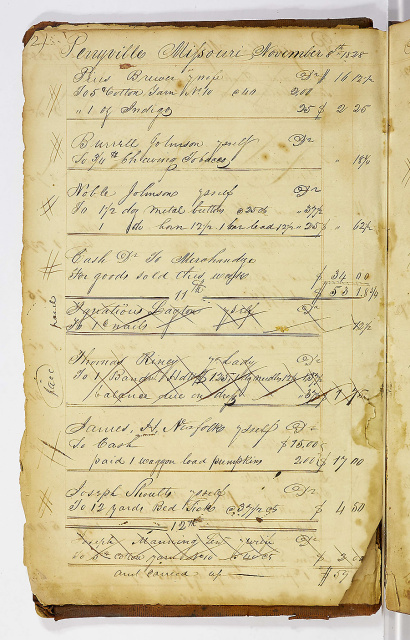 21
Perryville Missouri November 8th 1828
Peris Brewer pr self Dr $ 16 12½
To 5 Cotton Yarn No 10 @ 40 2.00
" 1 of Indigo 25 $ 2 25
Burrell Johnson yself Dr
To 3/4 lb Chewing Tobacco " 18¾
Noble Johnson yself Dr
To 1½ doz metal buttons @ 25 cts " 37½
1 horn 12½ 1 bar lead 12½ " 25 $ " 62½
Cash Dr To Merchandize
For goods sold this week $ 34 00
$ 53 18¾
11th
paid
Ignatious Layton yself Dr
To 1 nails
Thomas Riney pr Lady Dr
To 1 Band
balance due on
James H. Norfolk yself Dr
To Cash $ 15.00
paid 1 waggon load pumpkins 2.00 $ 17 00
Joseph Shoults yself Dr
To 12 yards Bed Tick @ 37½ cts $ 4 50
12th
Joseph Manning Dr
To 5 cotton yarn No 10 $ 2 00
amt carried up $ 59